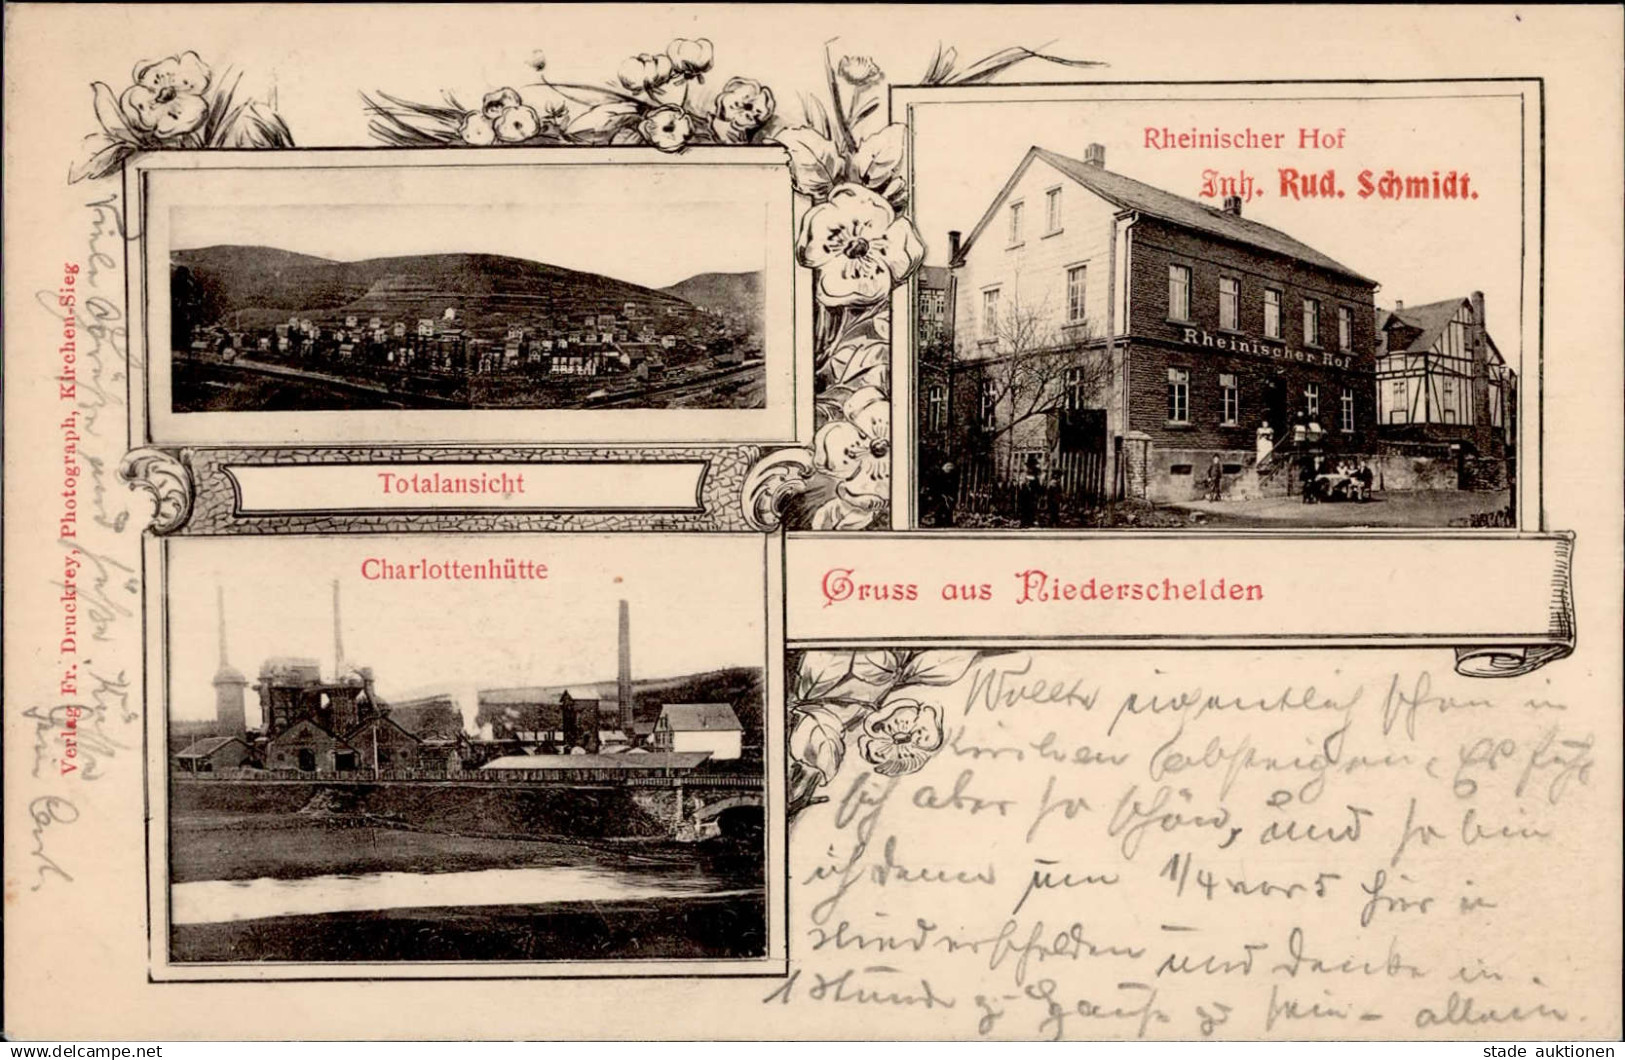 Rheinischer Hof
Inh. Rud. Schmidt.
Rheinischer Hof
Totalansicht
Charlottenhütte
Gruss aus Niederschelden
Verlag Fr. Druckrey, Photograph, Kirchen-Sieg
Wollte eigentlich schon in
Kirchen absteigen, Es fuhr
sich aber so schön, und so bin
ich denn um 1/4 vor 5 hier in
Niederschelden und denke in
1 Stunde z. Hause zu sein - allein.
Viele Grüße und süße Küsse
Dein Carl.
stade auktionen